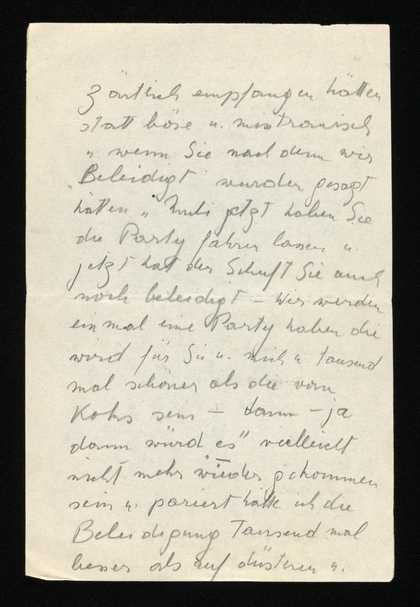 zärtlich empfangen hätten
statt böse u. misstrauisch
u wenn Sie nachdem wir
"Beleidigt" wurden gesagt
hätten " jetzt haben Sie
die Party fahren lassen u.
jetzt hat der Schuft Sie auch
noch beleidigt – Wir werden
einmal eine Party haben die
wird für Sie u. mich u tausend
mal schöner als die vom
Kohs sein – dann – ja
dann würd es" vielleicht
nicht mehr wieder gekommen
sein u. pariert hätte ich die
Beleidigung Tausend mal
besser als auf düsteren u.